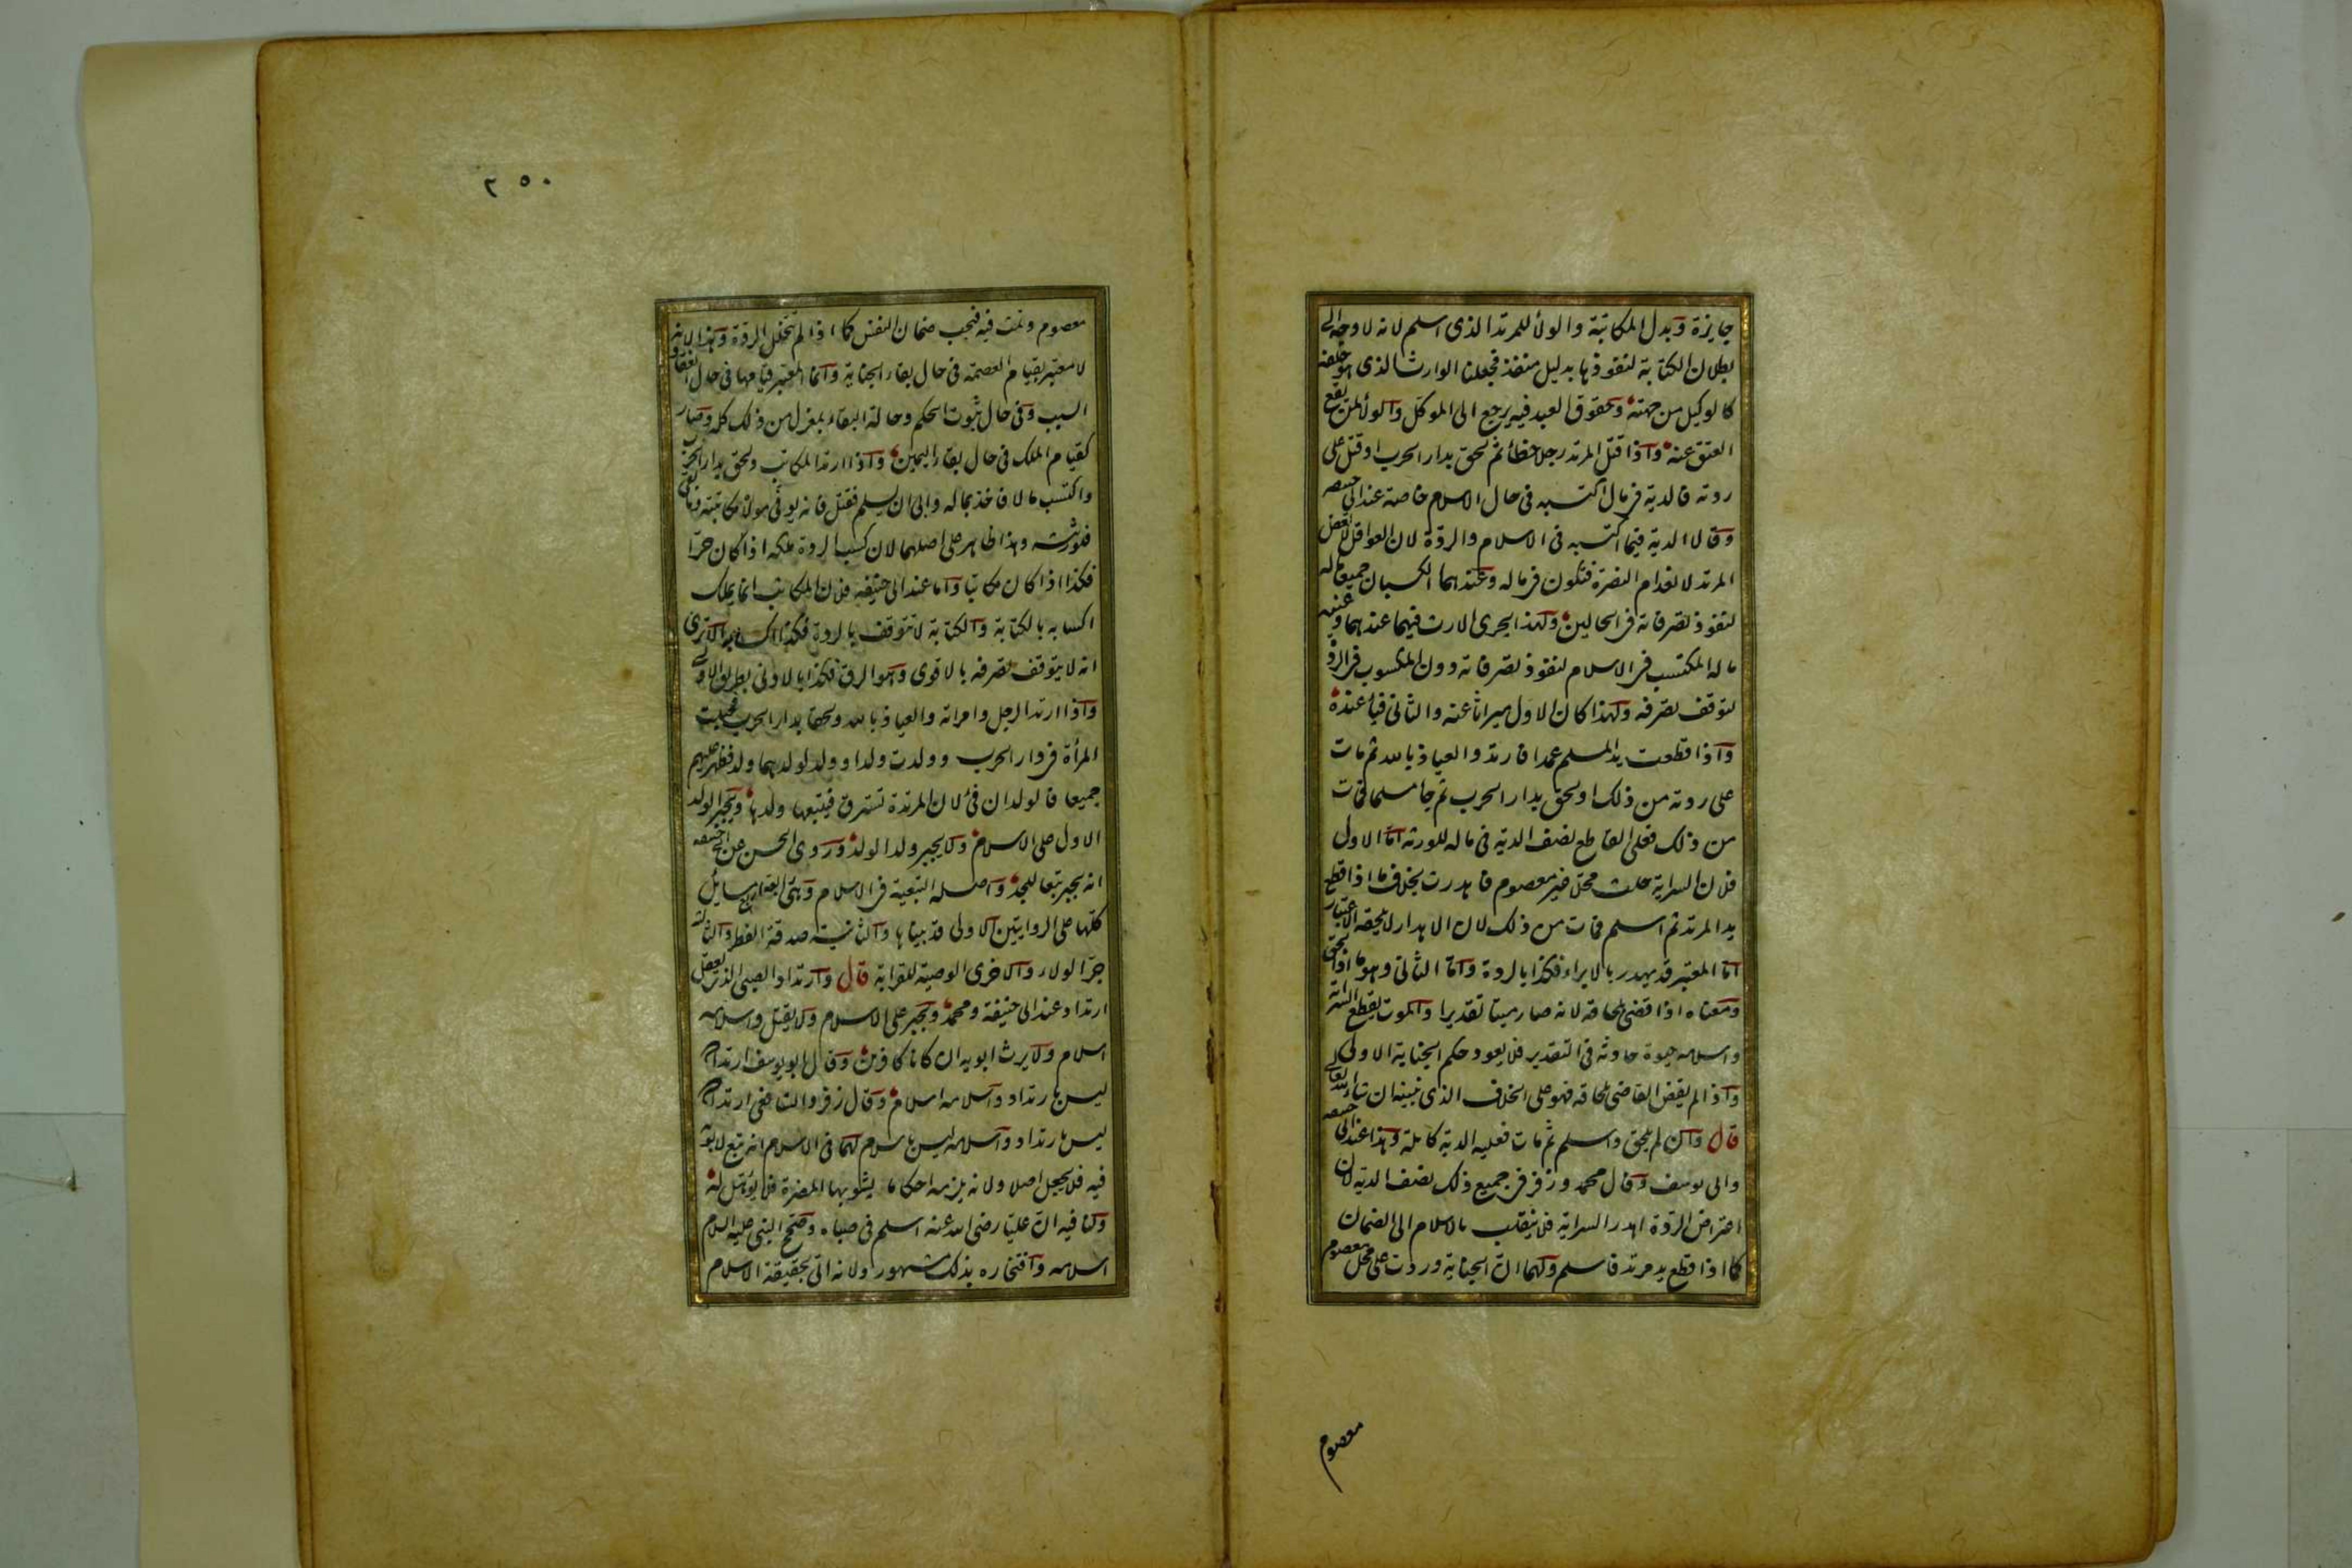 جايزة وبدل المكاتبة والولأ للمرتد الذى اسلم لانه لا وجه الى
بطلان الكتابة لنفوذها بدليل منفذ فجعلنا الوارث الذى هو خلفه
كالوكيل من جهته وحقوق العبد فيه يرجع الى الموكل والولأ لمن يقع
العتق عنه واذا قتل المرتد رجلا خطأ ثم لحق بدار الحرب او قتل على
ردته فالدية فى مال اكتسبه فى حال الاسلام خاصة عند ابى حنيفه
وقالا الدية فيما اكتسبه فى الاسلام والردة لان العواقل لا تعقل
المرتد لانعدام النصرة فتكون فى ماله وعندهما الكسبان جميعا ماله
لنفوذ تصرفاته فى الحالين ولهذا يجرى الارث فيهما عندهما وعنده
ماله المكتسب فى الاسلام لنفوذ تصرفاته دون المكسوب فى الردة
لتوقف تصرفه ولهذا كان الاول ميراثا عنه والثانى فيأ عنده
واذا قطعت يد المسلم عمدا فارتد والعياذ بالله ثم مات
على ردته من ذلك او لحق بدار الحرب ثم جا مسلما فمات
من ذلك فعلى القاطع نصف الدية فى ماله للورثه اما الاول
فلان السراية حلت محلا غير معصوم فاهدرت بخلاف ما اذا قطع
يد المرتد ثم اسلم فمات من ذلك لان الاهدار لا يلحقه الاعتبار
اما المعتبر قد يهدر بالابراء فكذا بالردة واما الثانى وهو ما اذا لحق
ومعناه اذا قضى بلحاقه لانه صار ميتا تقديرا والموت يقطع السراية
واسلامه حيوة حادثة فى التقدير فلا يعود حكم الجناية الاولى
واذا لم يقض القاضى بلحاقه فهو على الخلاف الذى نبينه ان شاء الله تعالى
قال وان لم يلحق واسلم ثم مات فعليه الدية كاملة وهذا عند ابى حنيفه
وابى يوسف وقال محمد وزفر فى جميع ذلك نصف الدية لان
اعتراض الردة اهدر السراية فلا ينقلب بالاسلام الى الضمان
كما اذا قطع يد مرتد فاسلم ولهما ان الجناية وردت على محل معصوم
معصوم
٢٥٠
معصوم وتمت فيه فيجب ضمان النفس كما اذا لم تتخلل الردة وهذا لانه
لا معتبر بقيام العصمة فى حال بقاء الجناية وانما المعتبر قيامها فى حال انعقاد
السبب وفى حال ثبوت الحكم وحالة البقاء بمعزل من ذلك كله وصار
كقيام الملك فى حال بقاء اليمين واذا ارتد المكاتب ولحق بدار الحرب
واكتسب مالا فاخذ بماله وابى ان يسلم فقتل فانه يوفى مولاه مكاتبته وما بقى
فلورثته وهذا ظاهر على اصلهما لان كسب الردة ملكه اذا كان حرا
فكذا اذا كان مكاتبا واما عند ابى حنيفه فلان المكاتب انما يملك
اكسابه بالكتابة والكتابة لا تتوقف بالردة فكذا اكسابه الا ترى
انه لا يتوقف تصرفه بالاقوى وهو الرق فكذا بالادنى بطريق الاولى
واذا ارتد الرجل وامراته والعياذ بالله ولحقا بدار الحرب فحبلت
المرأة فى دار الحرب وولدت ولدا وولد لولدهما ولد فظهر عليهم
جميعا فالولدان فئ لان المرتدة تسترق فيتبعها ولدها ويجبر الولد
الاول على الاسلام ولا يجبر ولد الولد وروى الحسن عن ابى حنيفه
انه يجبر تبعا للجد واصله التبعية فى الاسلام وهى رابعة اربع مسايل
كلها على الروايتين الاولى قد بيناها والثانية صدقة الفطر والثالثه
جر الولاء والاخرى الوصية للقرابة قال وارتداد الصبى الذى يعقل
ارتداد عند ابى حنيفة ومحمد ويجبر على الاسلام ولا يقتل واسلامه
اسلام ولا يرث ابويه ان كانا كافرين وقال ابو يوسف ارتداده
ليس بارتداد واسلامه اسلام وقال زفر والشافعى ارتداده
ليس بارتداد واسلامه ليس باسلام لهما فى الاسلام انه تبع لابويه
فيه فلا يجعل اصلا ولانه يلزمه احكاما يشوبها المضرة فلا يؤهل له
ولنا فيه ان عليا رضى الله عنه اسلم فى صباه وصحح النبى عليه السلام
اسلامه وافتخاره بذلك مشهور ولانه اتى بحقيقة الاسلام